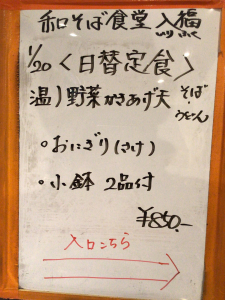 和そば食堂 入福
1/20 <日替定食>
温)野菜かきあげ天 そば・うどん
。おにぎり(さけ)
。小鉢 2品付
¥850.-
入口こちら